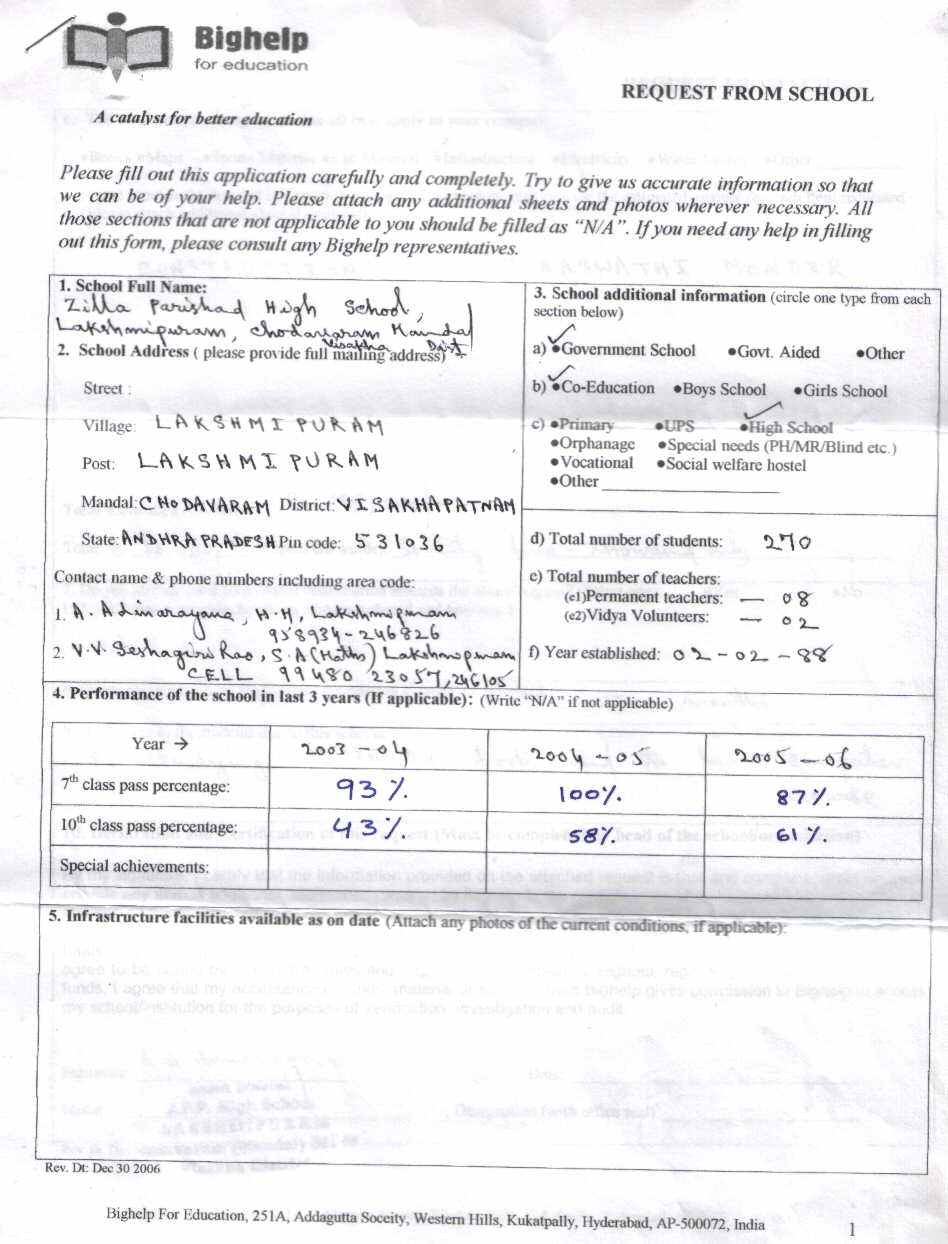 Bighelp
for education
REQUEST FROM SCHOOL
A catalyst for better education
Please fill out this application carefully and completely. Try to give us accurate information so that
we can be of your help. Please attach any additional sheets and photos wherever necessary. All
those sections that are not applicable to you should be filled as “N/A”. If you need any help in filling
out this form, please consult any Bighelp representatives.
1. School Full Name:
Zilla Parishad High School,
Lakshmipuram, Chodavaram Mandal
Visaptha Dist
2. School Address ( please provide full mailing address)
Street :
Village: LAKSHMIPURAM
Post: LAKSHMIPURAM
Mandal: CHODAVARAM District: VISAKHAPATNAM
State: ANDHRA PRADESH Pin code: 531036
Contact name & phone numbers including area code:
1. A. Adinarayana, H.M, Lakshmipuram
958934-246826
2. V.V. Seshagiri Rao, S.A (Maths) Lakshmipuram
CELL 99480 23057, 246105
3. School additional information (circle one type from each
section below)
a) •Government School •Govt. Aided •Other
b) •Co-Education •Boys School •Girls School
c) •Primary •UPS •High School
•Orphanage •Special needs (PH/MR/Blind etc.)
•Vocational •Social welfare hostel
•Other
d) Total number of students: 270
e) Total number of teachers:
(e1)Permanent teachers: — 08
(e2)Vidya Volunteers: — 02
f) Year established: 02-02-88
4. Performance of the school in last 3 years (If applicable): (Write “N/A” if not applicable)
Year → 2003-04 2004-05 2005-06
7th class pass percentage: 93% 100% 87%
10th class pass percentage: 43% 58% 61%
Special achievements:
5. Infrastructure facilities available as on date (Attach any photos of the current conditions, if applicable):
Rev. Dt: Dec 30 2006
Bighelp For Education, 251A, Addagutta Soceity, Western Hills, Kukatpally, Hyderabad, AP-500072, India
1